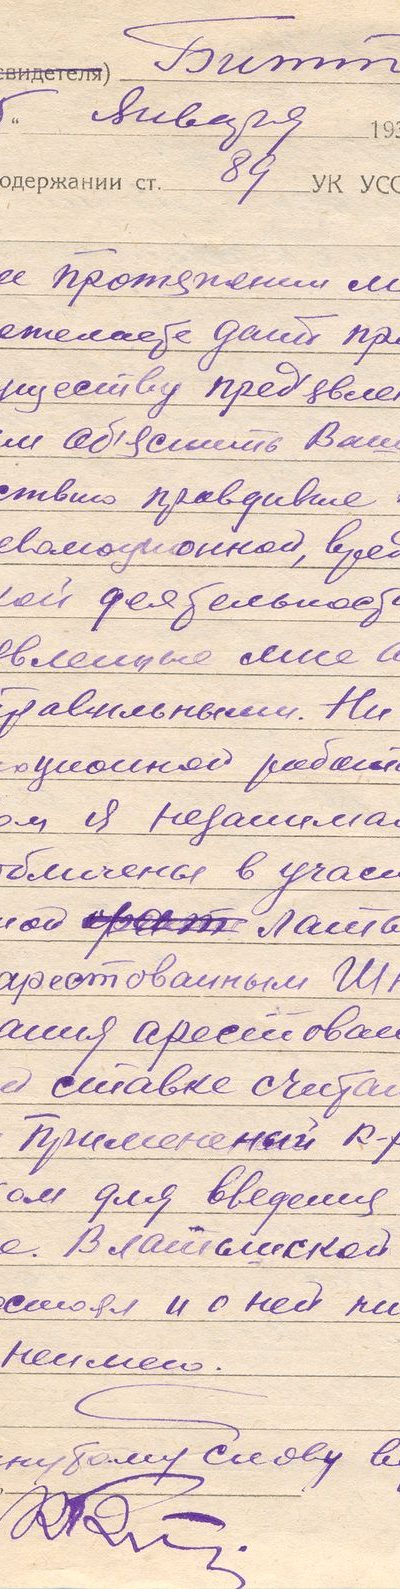 свидетеля) Битт
5 " Января 193
одержании ст. 89 УК УСС
ие протяжении м
ежелаете дать пр
уществу пред'явле
им об'яснить Ваш
ствию правдивые
еволюционной, вред
кой деятельност
явленные мне
правильными. Ни
юционной работ
ом я незанимал
обличенья в участ
ной фат Латы
арестованным Ш
ания арестован
ой ставке счита
Примененный к-р
ом для введения
е. В латышской
остоял и с ней ни
неимею.
нутому слову в